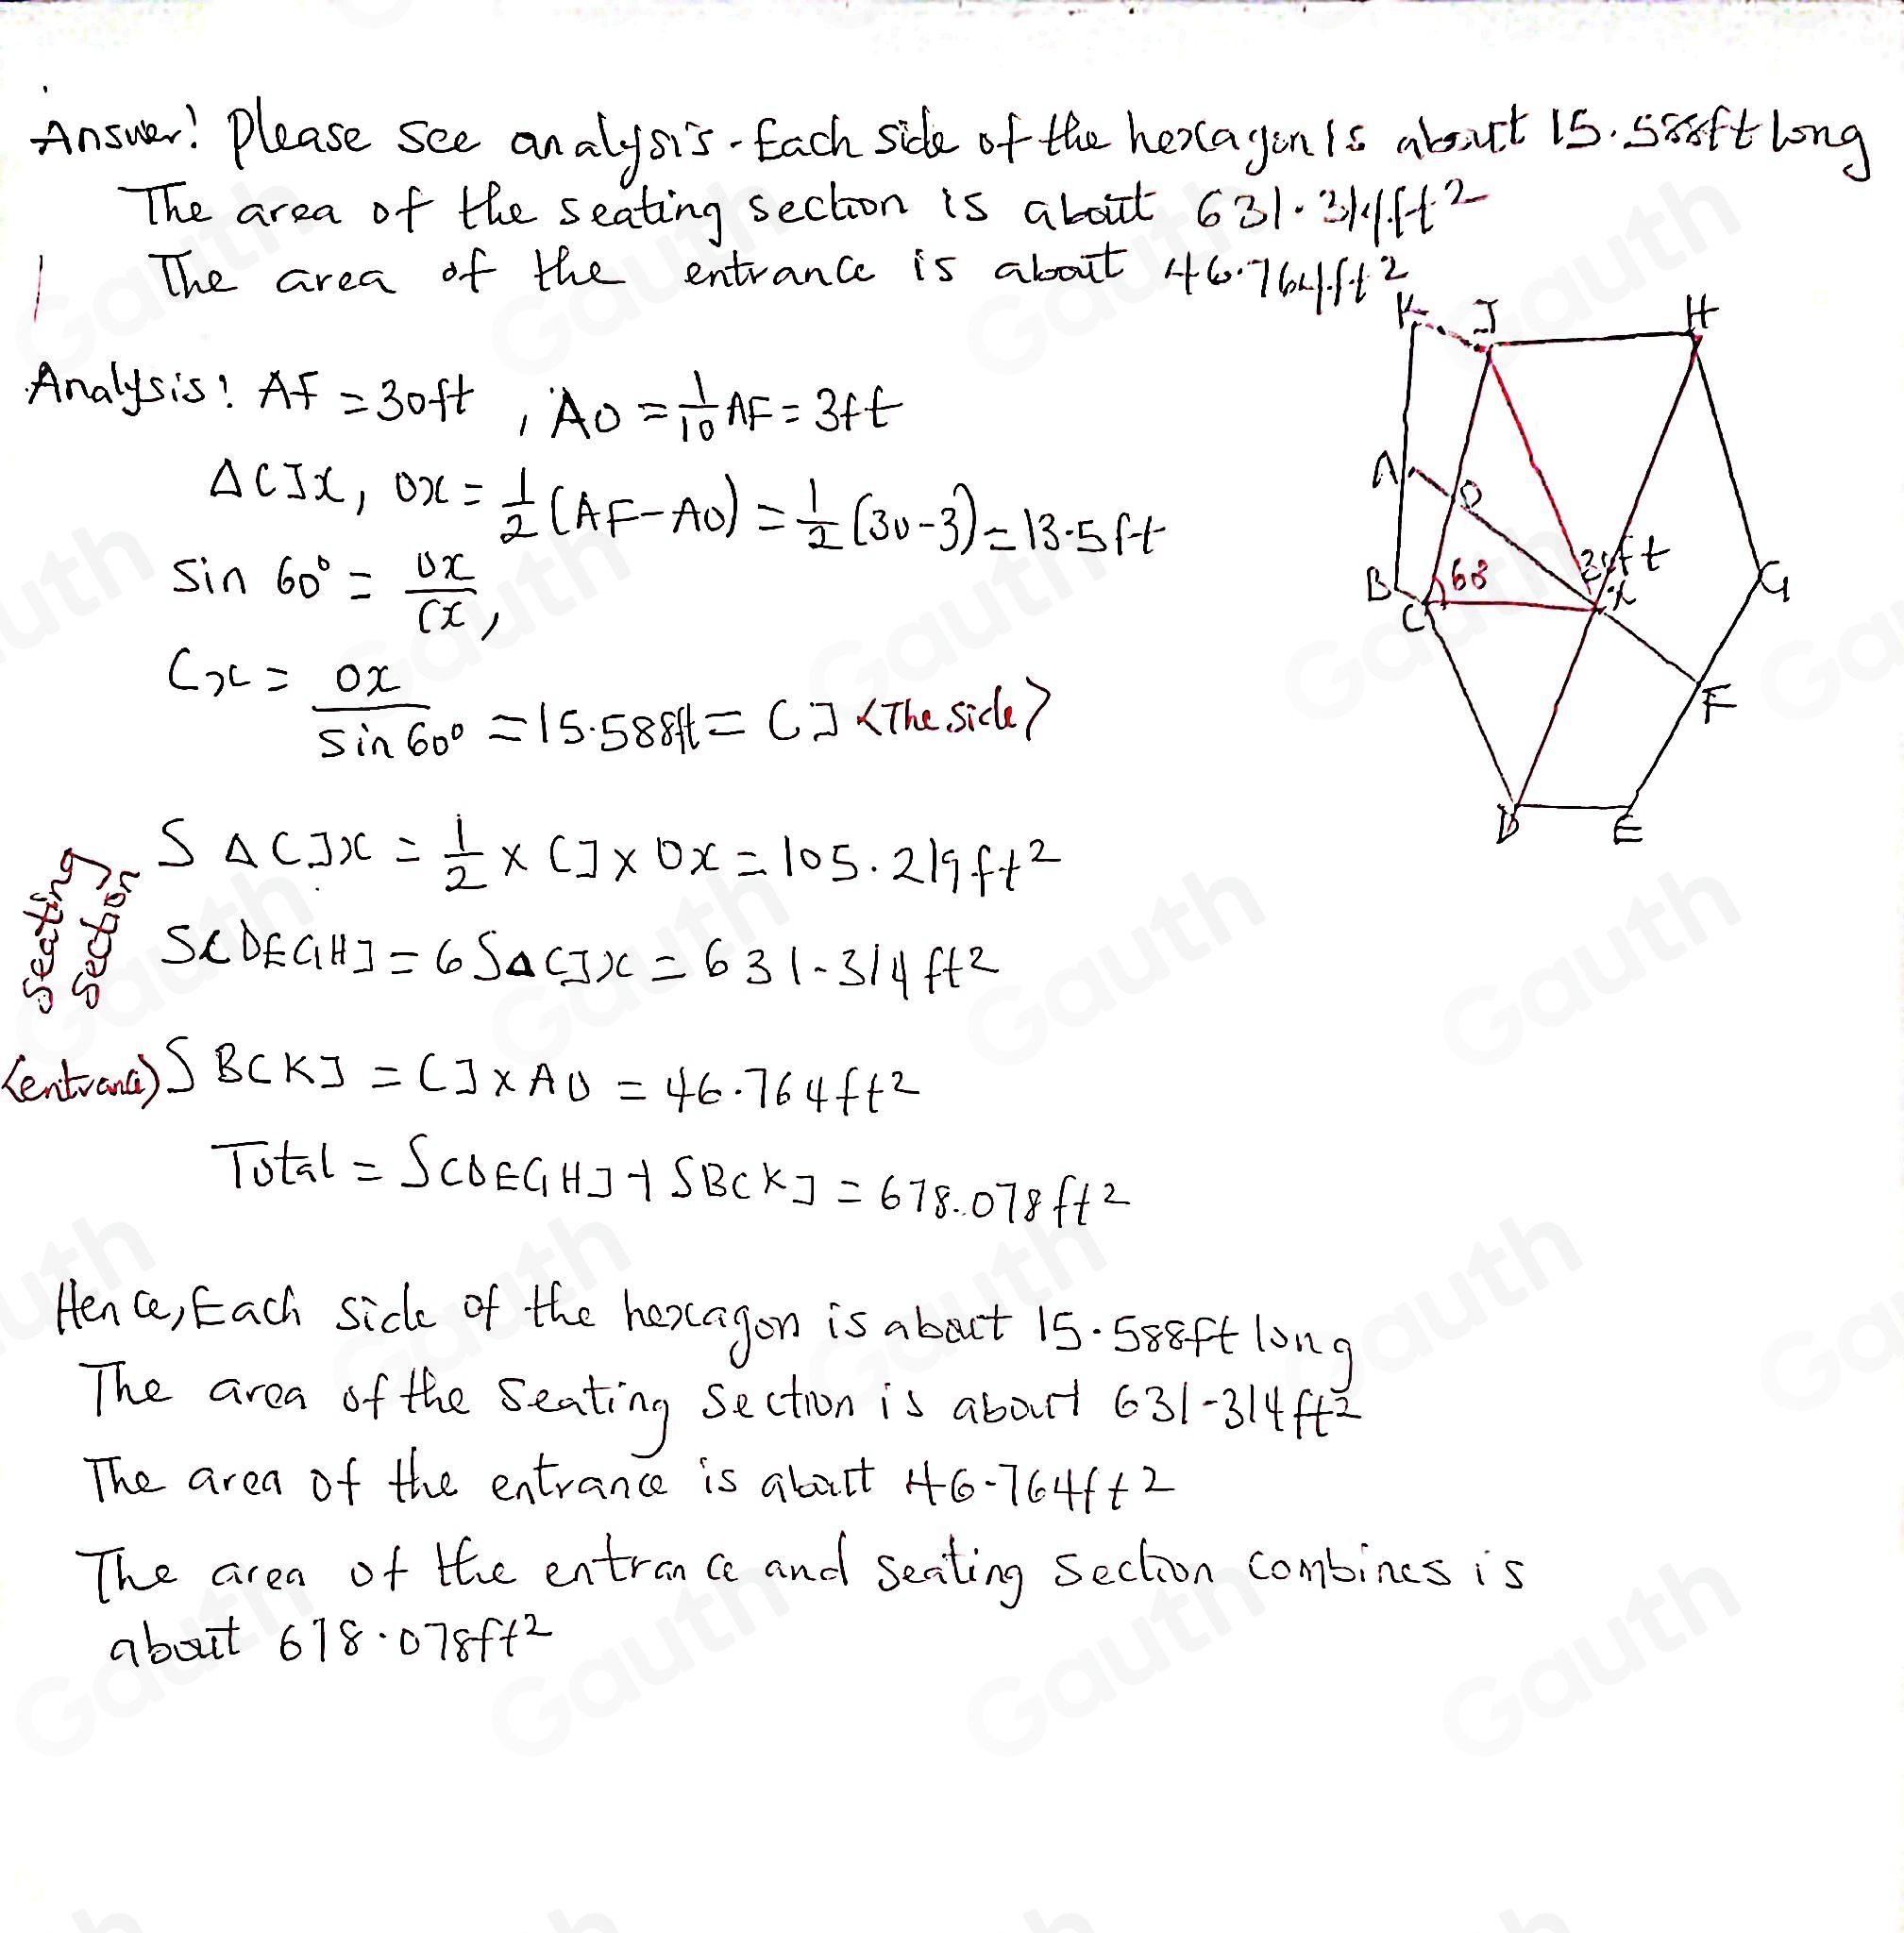 Answer! Please see analysis. Each side of the hexagon is about 15.588ft long
The area of the seating section is about 631.314ft²
The area of the entrance is about 46.764ft²
Analysis! AF = 30ft , AO = 1/10 AF = 3ft
ΔCJX, OX = 1/2 (AF-AO) = 1/2 (30-3) = 13.5ft
Sin 60° = OX/CX,
CX = OX/Sin60° = 15.588ft = CJ <The side>
Seating Section
SΔCJX = 1/2 × CJ × OX = 105.219ft²
SCDEGHJ = 6SΔCJX = 631.314ft²
<entrance> SBCKJ = CJ × AO = 46.764ft²
Total = SCDEGHJ + SBCKJ = 678.078ft²
Hence, Each side of the hexagon is about 15.588ft long
The area of the seating section is about 631-314ft²
The area of the entrance is about 46-764ft²
The area of the entrance and seating section combines is
about 678.078ft²
K J H
A O
B C 60 X G
F
D E
Gauth